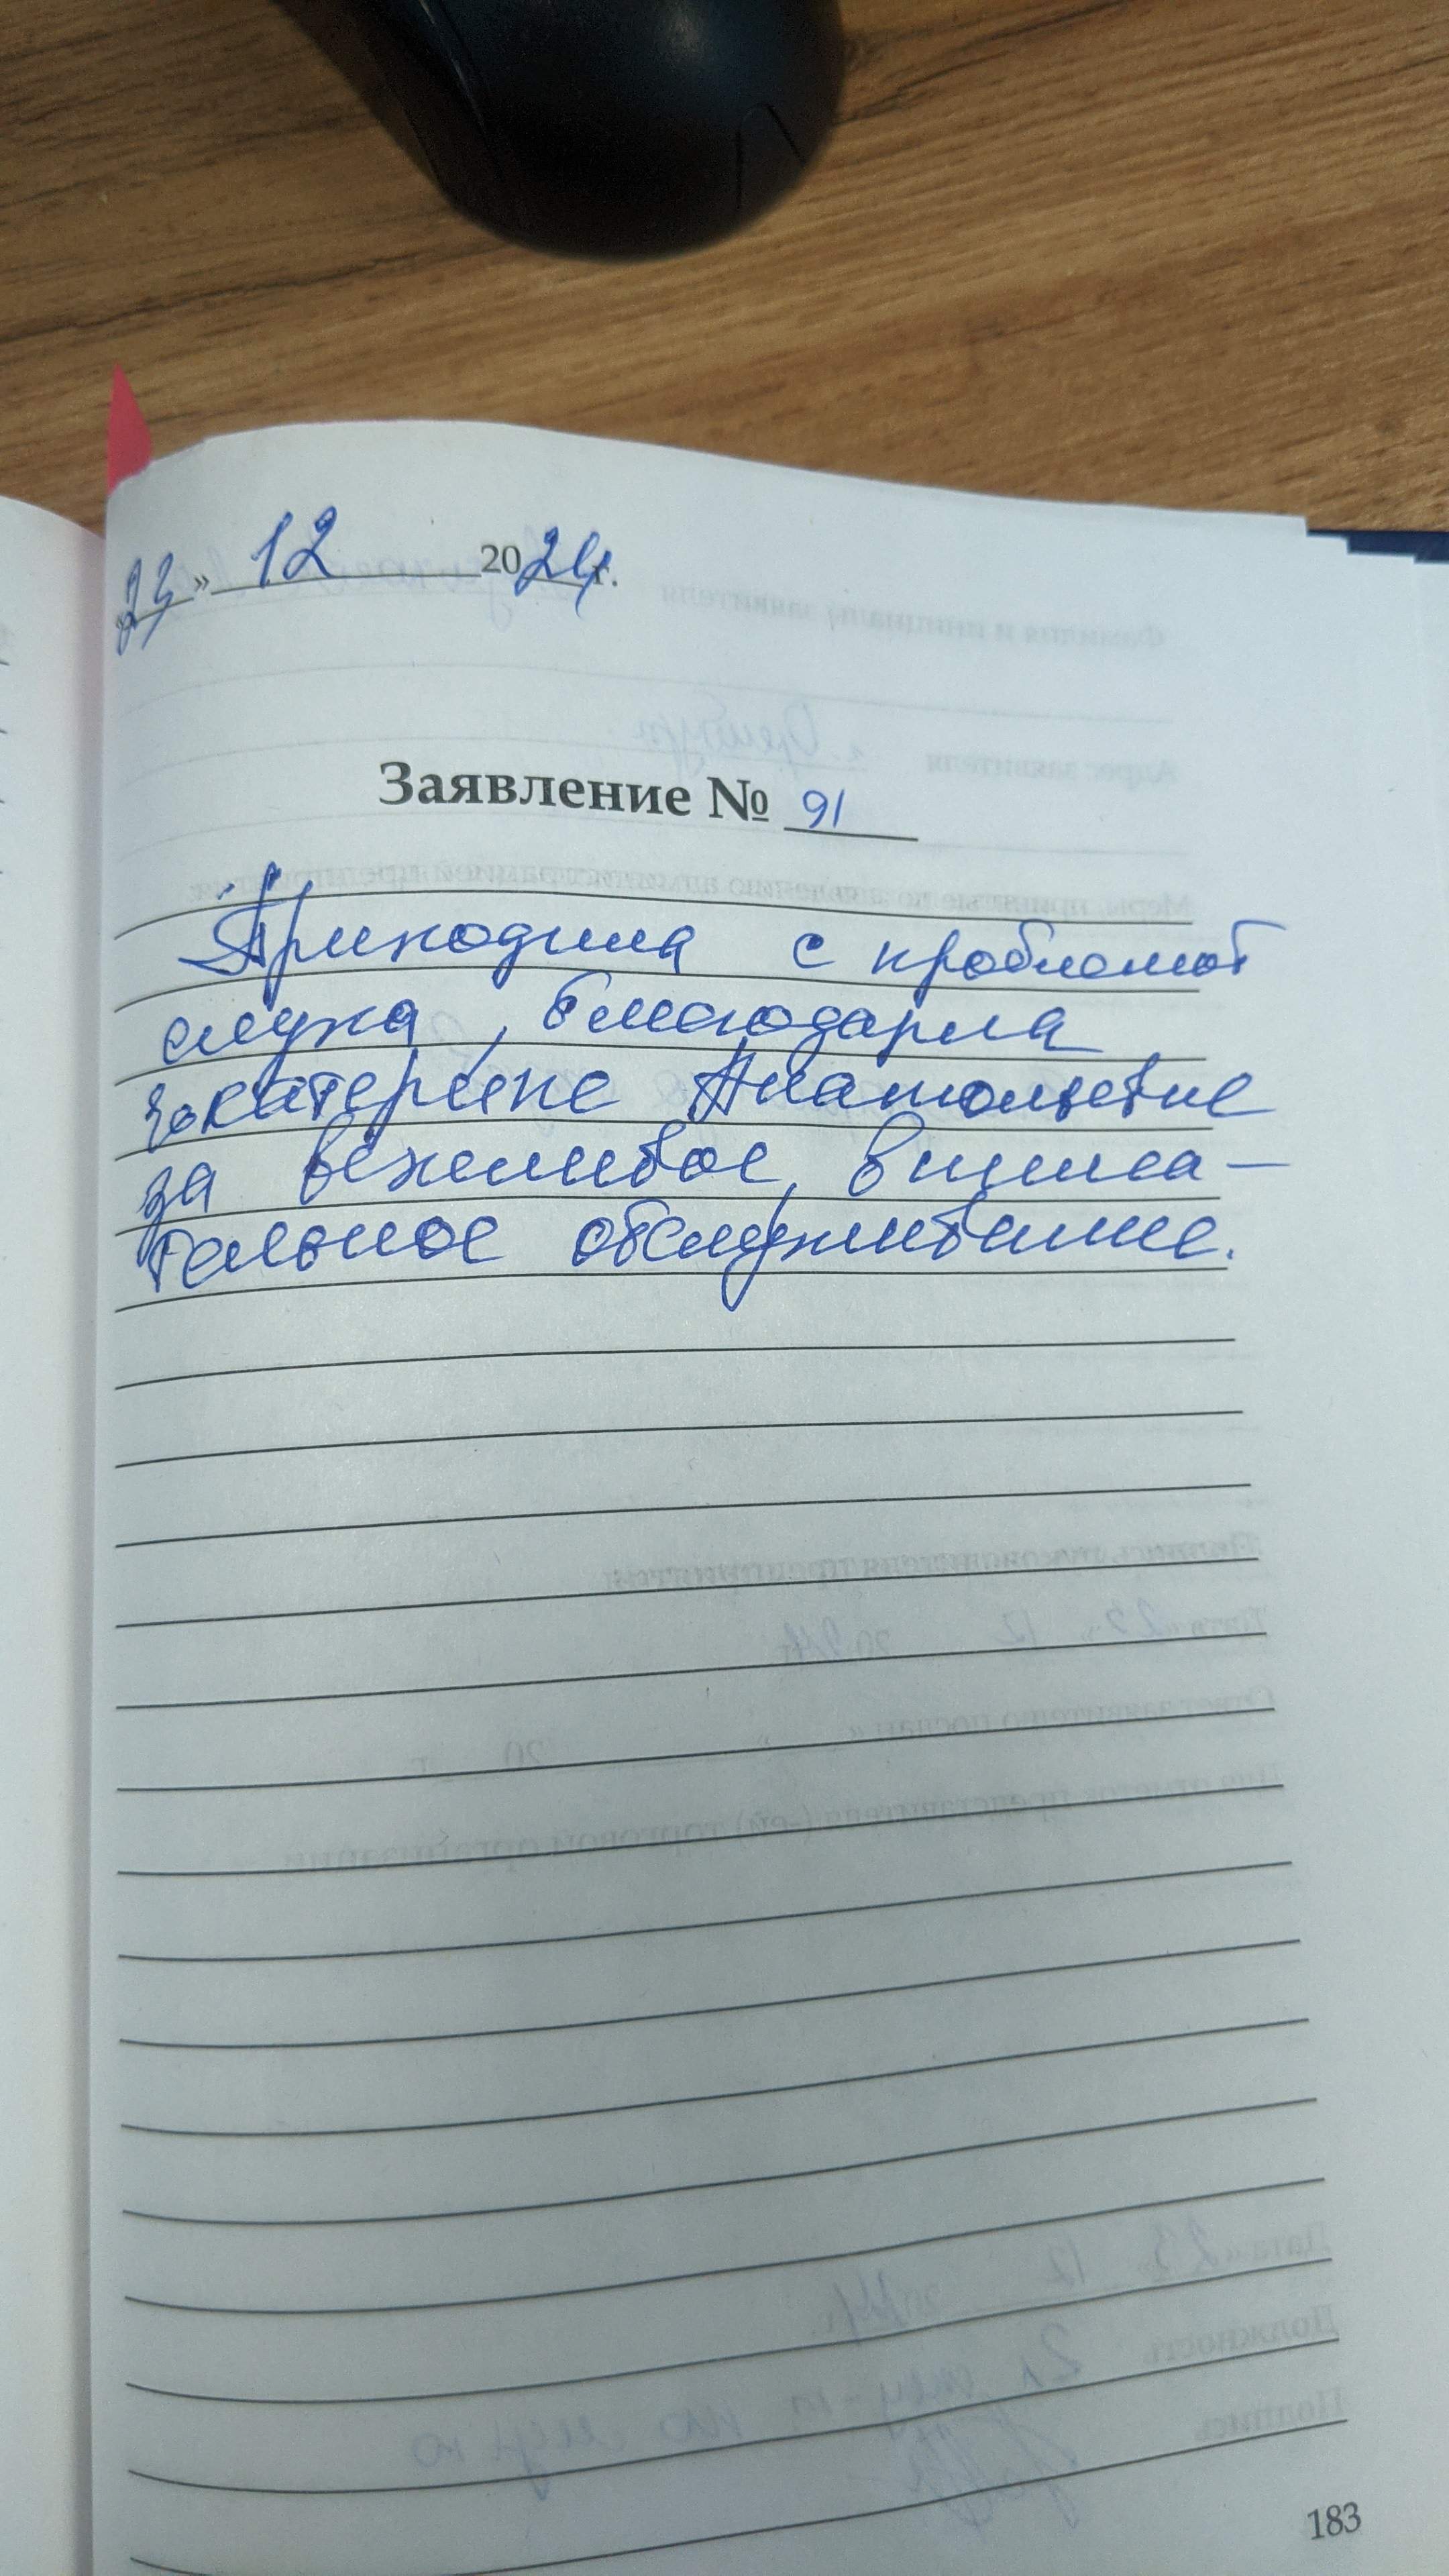 «23» 12 2024г.
Заявление № 91
Приходила с проблемой
слуха, благодарна
Екатерине Анатольевне
за вежливое, внима-
тельное обслуживание.
183